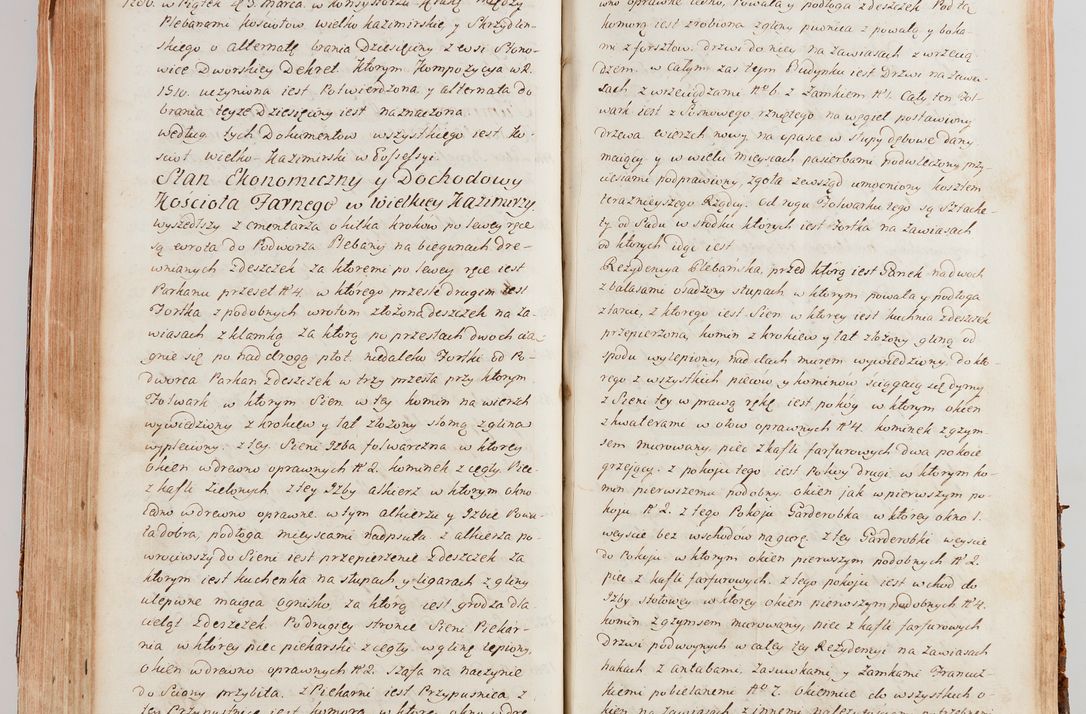 w Piątek 23. marca. w konsystorzu
Plebanami kosciołow wielko kazimirskie y Skrzydlin-
skiego o alternatę brania Dziesięciny z wsi Słono-
wice Dworskiey Dekret. ktorym kompozycya w R.
1510. uczyniona iest Potwierdzona y alternata do
brania teyze Dziesięciny iest naznaczona
według tych Dokumentow wszystkiego iest Ko-
scioł wielko-Kazimirski w Possessyi
Stan Ekonomiczny y Dochodowy
Kosciola Farnego w Wielkiey Kazimirzy.
wyszedłszy z cmentarza o kilka krokow po lewey ręce
są wrota do Podworza Plebanij na biegunach dre-
wnianych zdeszczek za ktoremi po lewey ręce iest
Parkanu przeseł N° 4. w ktorego przesle drugim iest
Fortka z podobnych wrotom złożona deszczek na za-
wiasach z klamką za ktorą po przesłach dwoch cią-
gnie się po nad drogą płot. niedaleko Fortki od Po-
dworca Parkan zdeszczek w trzy przesła przy ktorym
Folwark w ktorym Sien w tey komin na wierzch
wywiedziony z krokiew y łat złożony słomą z gliną
wypleciony. z tey Sieni Izba folwarczna w ktorey
okien w drewno oprawnych N° 2. kominek z cegły Piec
z kafli zielonych z tey Izby alkierz w ktorym okno
iedno w drewno oprawne. w tym alkierzu y Izbie Powa-
ła dobra, podłoga mieyscami nadpsuta z alkierza po-
wrociwszy do Sieni iest przepierzenie zdeszczek za
ktorym iest kuchenka na słupach y ligarach z gliny
ulepione maiąca ognisko, za ktorą iest grodza dla
cieląt zdeszczek Podrugiey stronie Sieni Piekar-
nia w ktorey piec piekarski z cegły w glinę lepiony,
okien w drewno oprawnych N° 2. Szafa na naczynie
do Sciany przybita. z Piekarni iest Przypusnica z
tey Przypustnice iest komora w ktorey okno w dre-
wno oprawne iedno, Powała y podłoga zdeszczek Pod tą
komorą iest zrobiona z gliny piwnica z powałą y boka-
mi z forsztow. drzwi do niey na zawiasach z wrzecią-
dzem. w Całym zas tym Budynku iest Drzwi na Zawia-
sach z wrzeciądzami N° 6. z Zamkiem N° 1. Cały ten Fol-
wark iest z Sosnowego rzniętego na węgieł postawiony
drzewa wierzch nowy na opasce w słupy dębowe dany.
maiący y w wielu mieyscach pasierbami podwleczony przy-
ciesiami podprawiony, zgoła zewsząd umocniony kosztem
teraznieyszego Rządcy. od rogu Folwarku tego są Sztache-
ty od Sadu w srodku ktorych iest Fortka na zawiasach
od ktorych idąc iest
Rezydencya Plebańska, przed ktorą iest Ganek nadwoch
z balasami osadzony słupach w ktorym powała y podłoga
z tarcic, z ktorego iest Sien w ktorey iest kuchnia zdeszczek
przepierzona, komin z krokiew y łat złożony gliną od
spodu wylepiony, nad dach murem wywiedziony, do kto-
rego z wszystkich piecow y kominow sciągaią się dymy
z Sieni tey w prawą rękę iest pokoy w ktorym okien
z kwaterami w ołow oprawnych N° 4. kominek z gzym-
sem murowany piec z kafli farfurowych dwa pokoie
grzejący. z pokoju tego iest Pokoy drugi w ktorym ko-
min pierwszemu podobny. okien jak w pierwszym po-
koju N° 2. z tego Pokoju Garderobka w ktorey okno 1.
weyscie bez wschodow na gorę. z tey Garderobki weyscie
do Pokoju w ktorym okien pierwszym podobnych N° 2.
piec z kafli farfurowych. z tego pokoju iest wchod do
Izby stołowey w ktorey okien pierwszym podobnych N° 4.
komin z gzymsem murowany, piec z kafli farfurowych
Drzwi podwoynych w całey tey Rezydencyi na zawiasach
hakach z antabami zasuwkami y zamkami Francuz-
kiemi pobielanemi N° 7. okiennic do wszystkich o-
kien na zawiasach z innemi